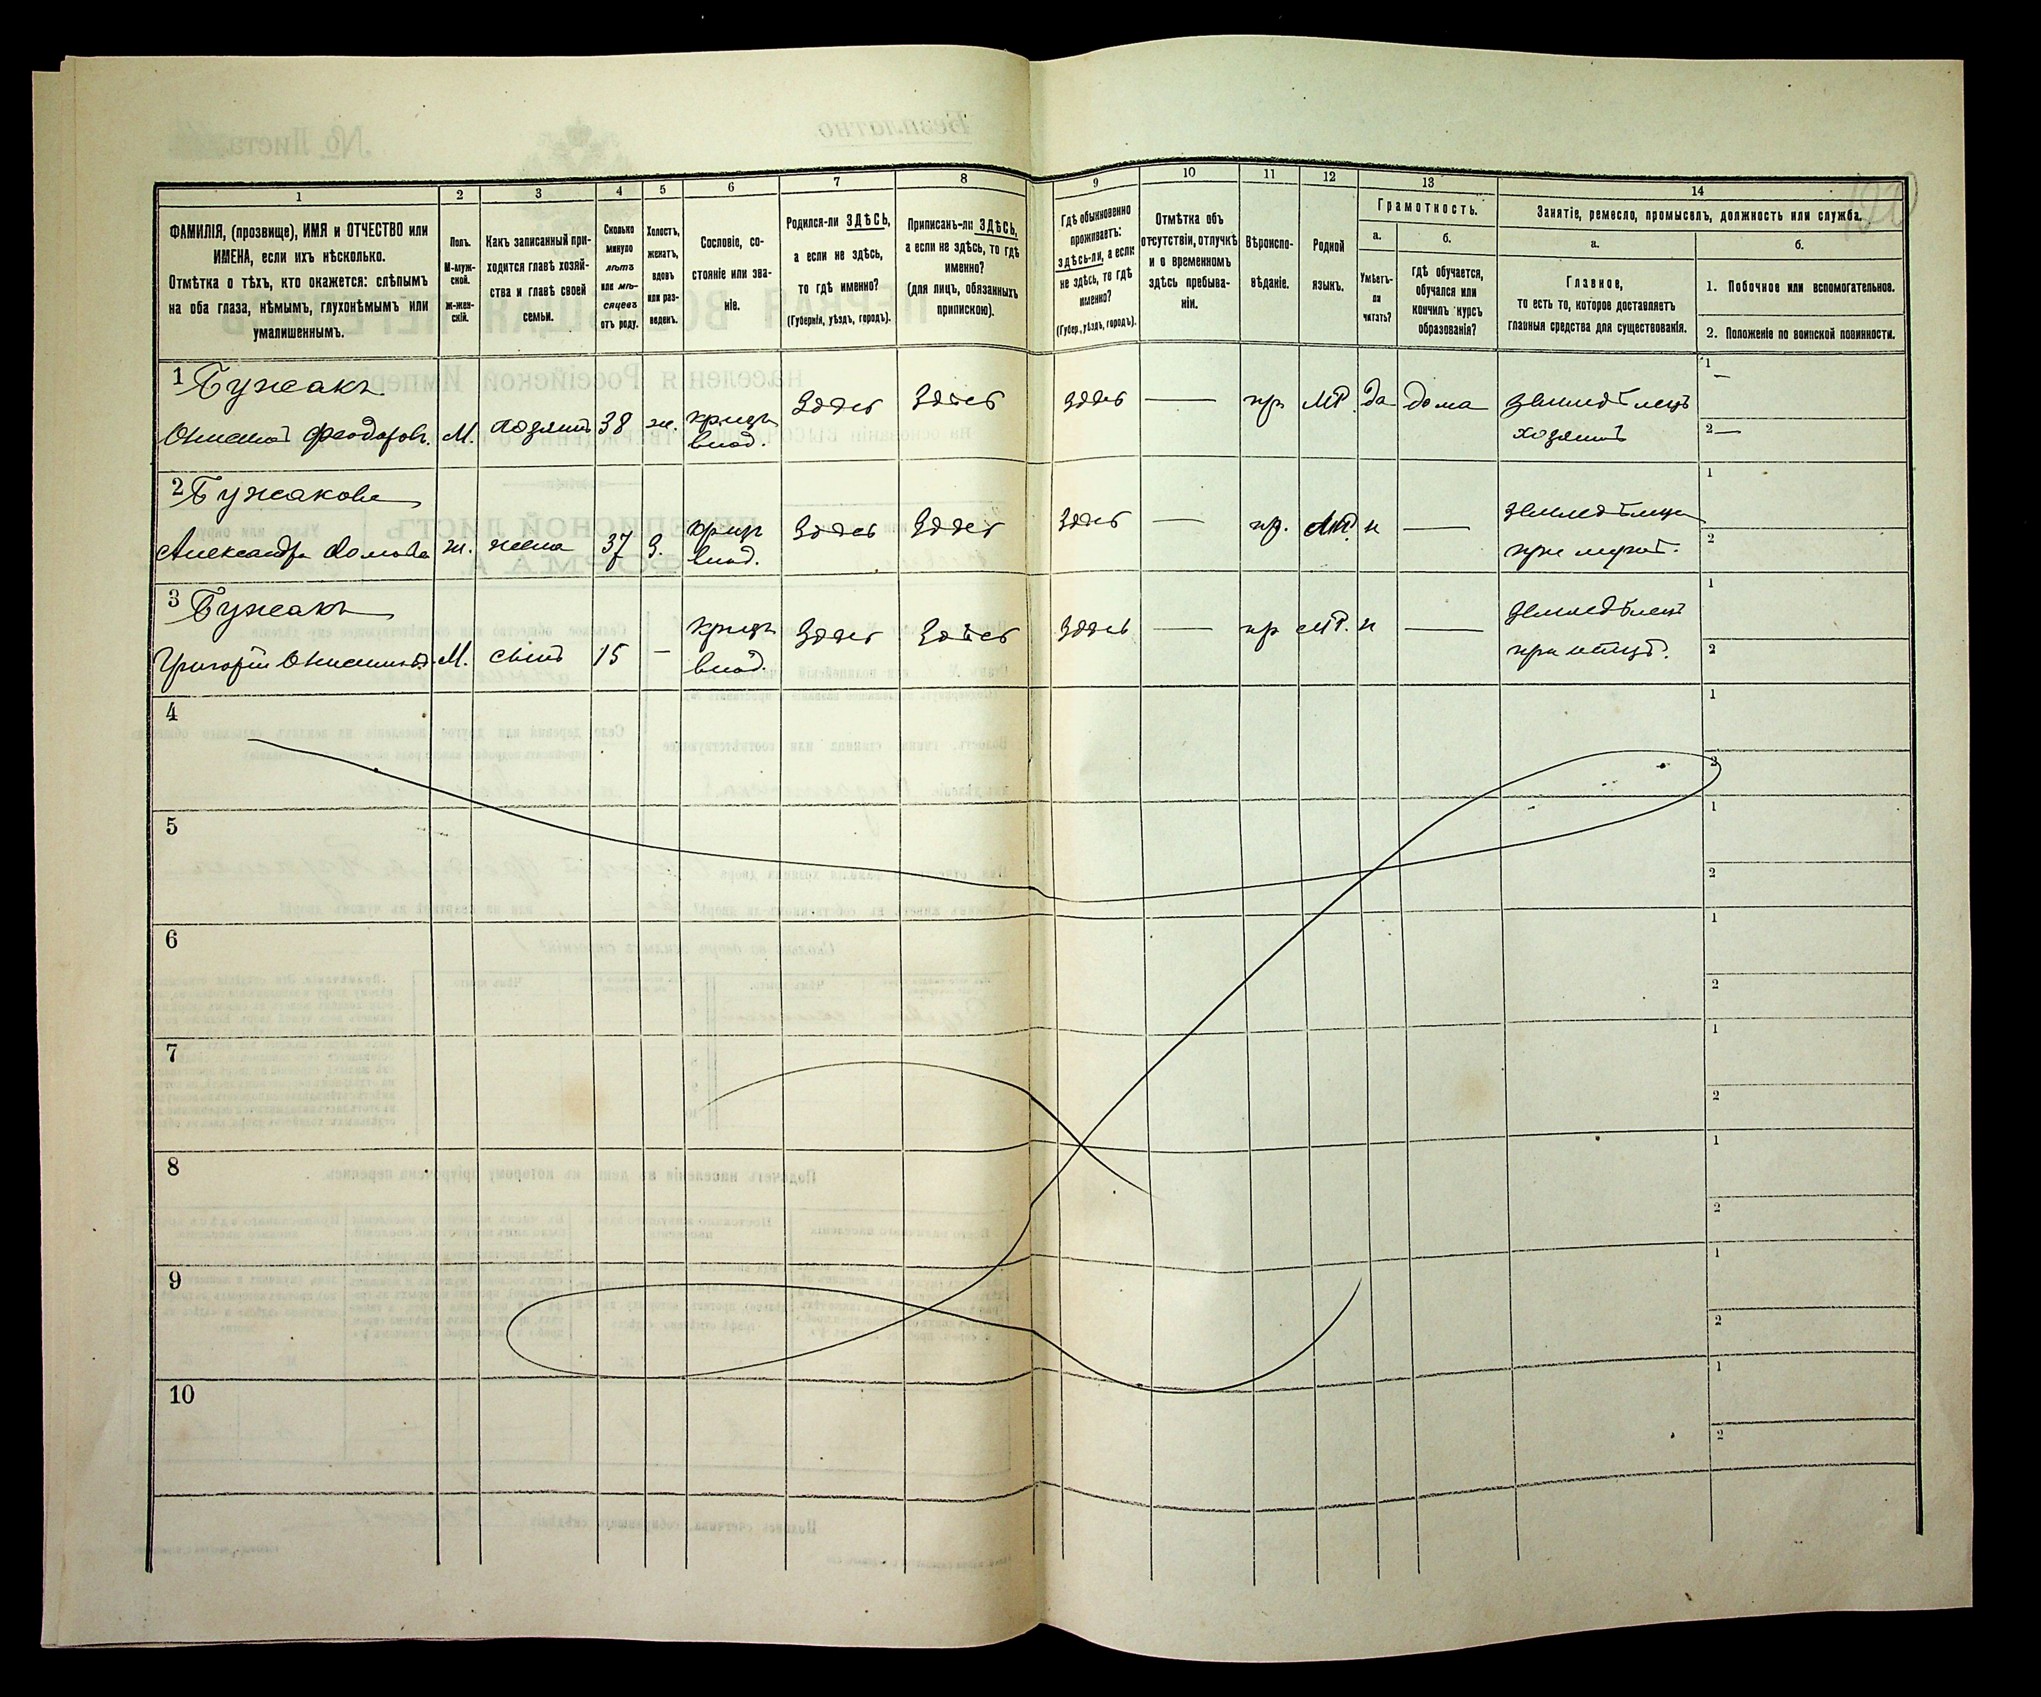 1 2 3 4 5 6 7 8 9 10 11 12 13 14
ФАМИЛІЯ, (прозвище), ИМЯ и ОТЧЕСТВО или
ИМЕНА, если ихъ нѣсколько.
Отмѣтка о тѣхъ, кто окажется: слѣпымъ
на оба глаза, нѣмымъ, глухонѣмымъ или
умалишеннымъ.
Полъ.
М-муж-
ской.
ж-жен-
скій.
Какъ записанный при-
ходится главѣ хозяй-
ства и главѣ своей
семьи.
Сколько
минуло
лѣтъ
или мѣ-
сяцевъ
отъ роду.
Холостъ,
женатъ,
вдовъ
или раз-
веденъ.
Сословіе, со-
стояніе или зва-
ніе.
Родился-ли ЗДѢСЬ,
а если не здѣсь,
то гдѣ именно?
(Губернія, уѣздъ, городъ).
Приписанъ-ли ЗДѢСЬ,
а если не здѣсь, то гдѣ
именно?
(для лицъ, обязанныхъ
припискою).
Гдѣ обыкновенно
проживаетъ:
здѣсь-ли, а если
не здѣсь, то гдѣ
именно?
(Губер., уѣздъ, городъ).
Отмѣтка объ
отсутствіи, отлучкѣ
и о временномъ
здѣсь пребыва-
ніи.
Вѣроиспо-
вѣданіе.
Родной
языкъ.
Грамотность.
а.
Умѣетъ-
ли
читать?
б.
гдѣ обучается,
обучался или
кончилъ курсъ
образованія?
Занятіе, ремесло, промыселъ, должность или служба.
а.
Главное,
то есть то, которое доставляетъ
главныя средства для существованія.
б.
1. Побочное или вспомогательное.
2. Положеніе по воинской повинности.
1 Бужакъ Здѣсь Здѣсь здѣсь — пр МР. да дома земледѣлецъ 1 —
Онисмій Феодоровъ. М. хозяинъ 38 ж. крестъ влад. хозяинъ 2 —
2 Бужакова Здѣсь Здѣсь Здѣсь — пр. МР. н — 1
Александра ж. жена 37 З. влад. при мужѣ. 2
3 Бужакъ Здѣсь Здѣсь Здѣсь — пр МР. н — земледѣлецъ 1
Григорій Онисимовъ М. сынъ 15 — влад. при отцѣ. 2
4 1
2
5 1
2
6 1
2
7 1
2
8 1
2
9 1
2
10 1
2